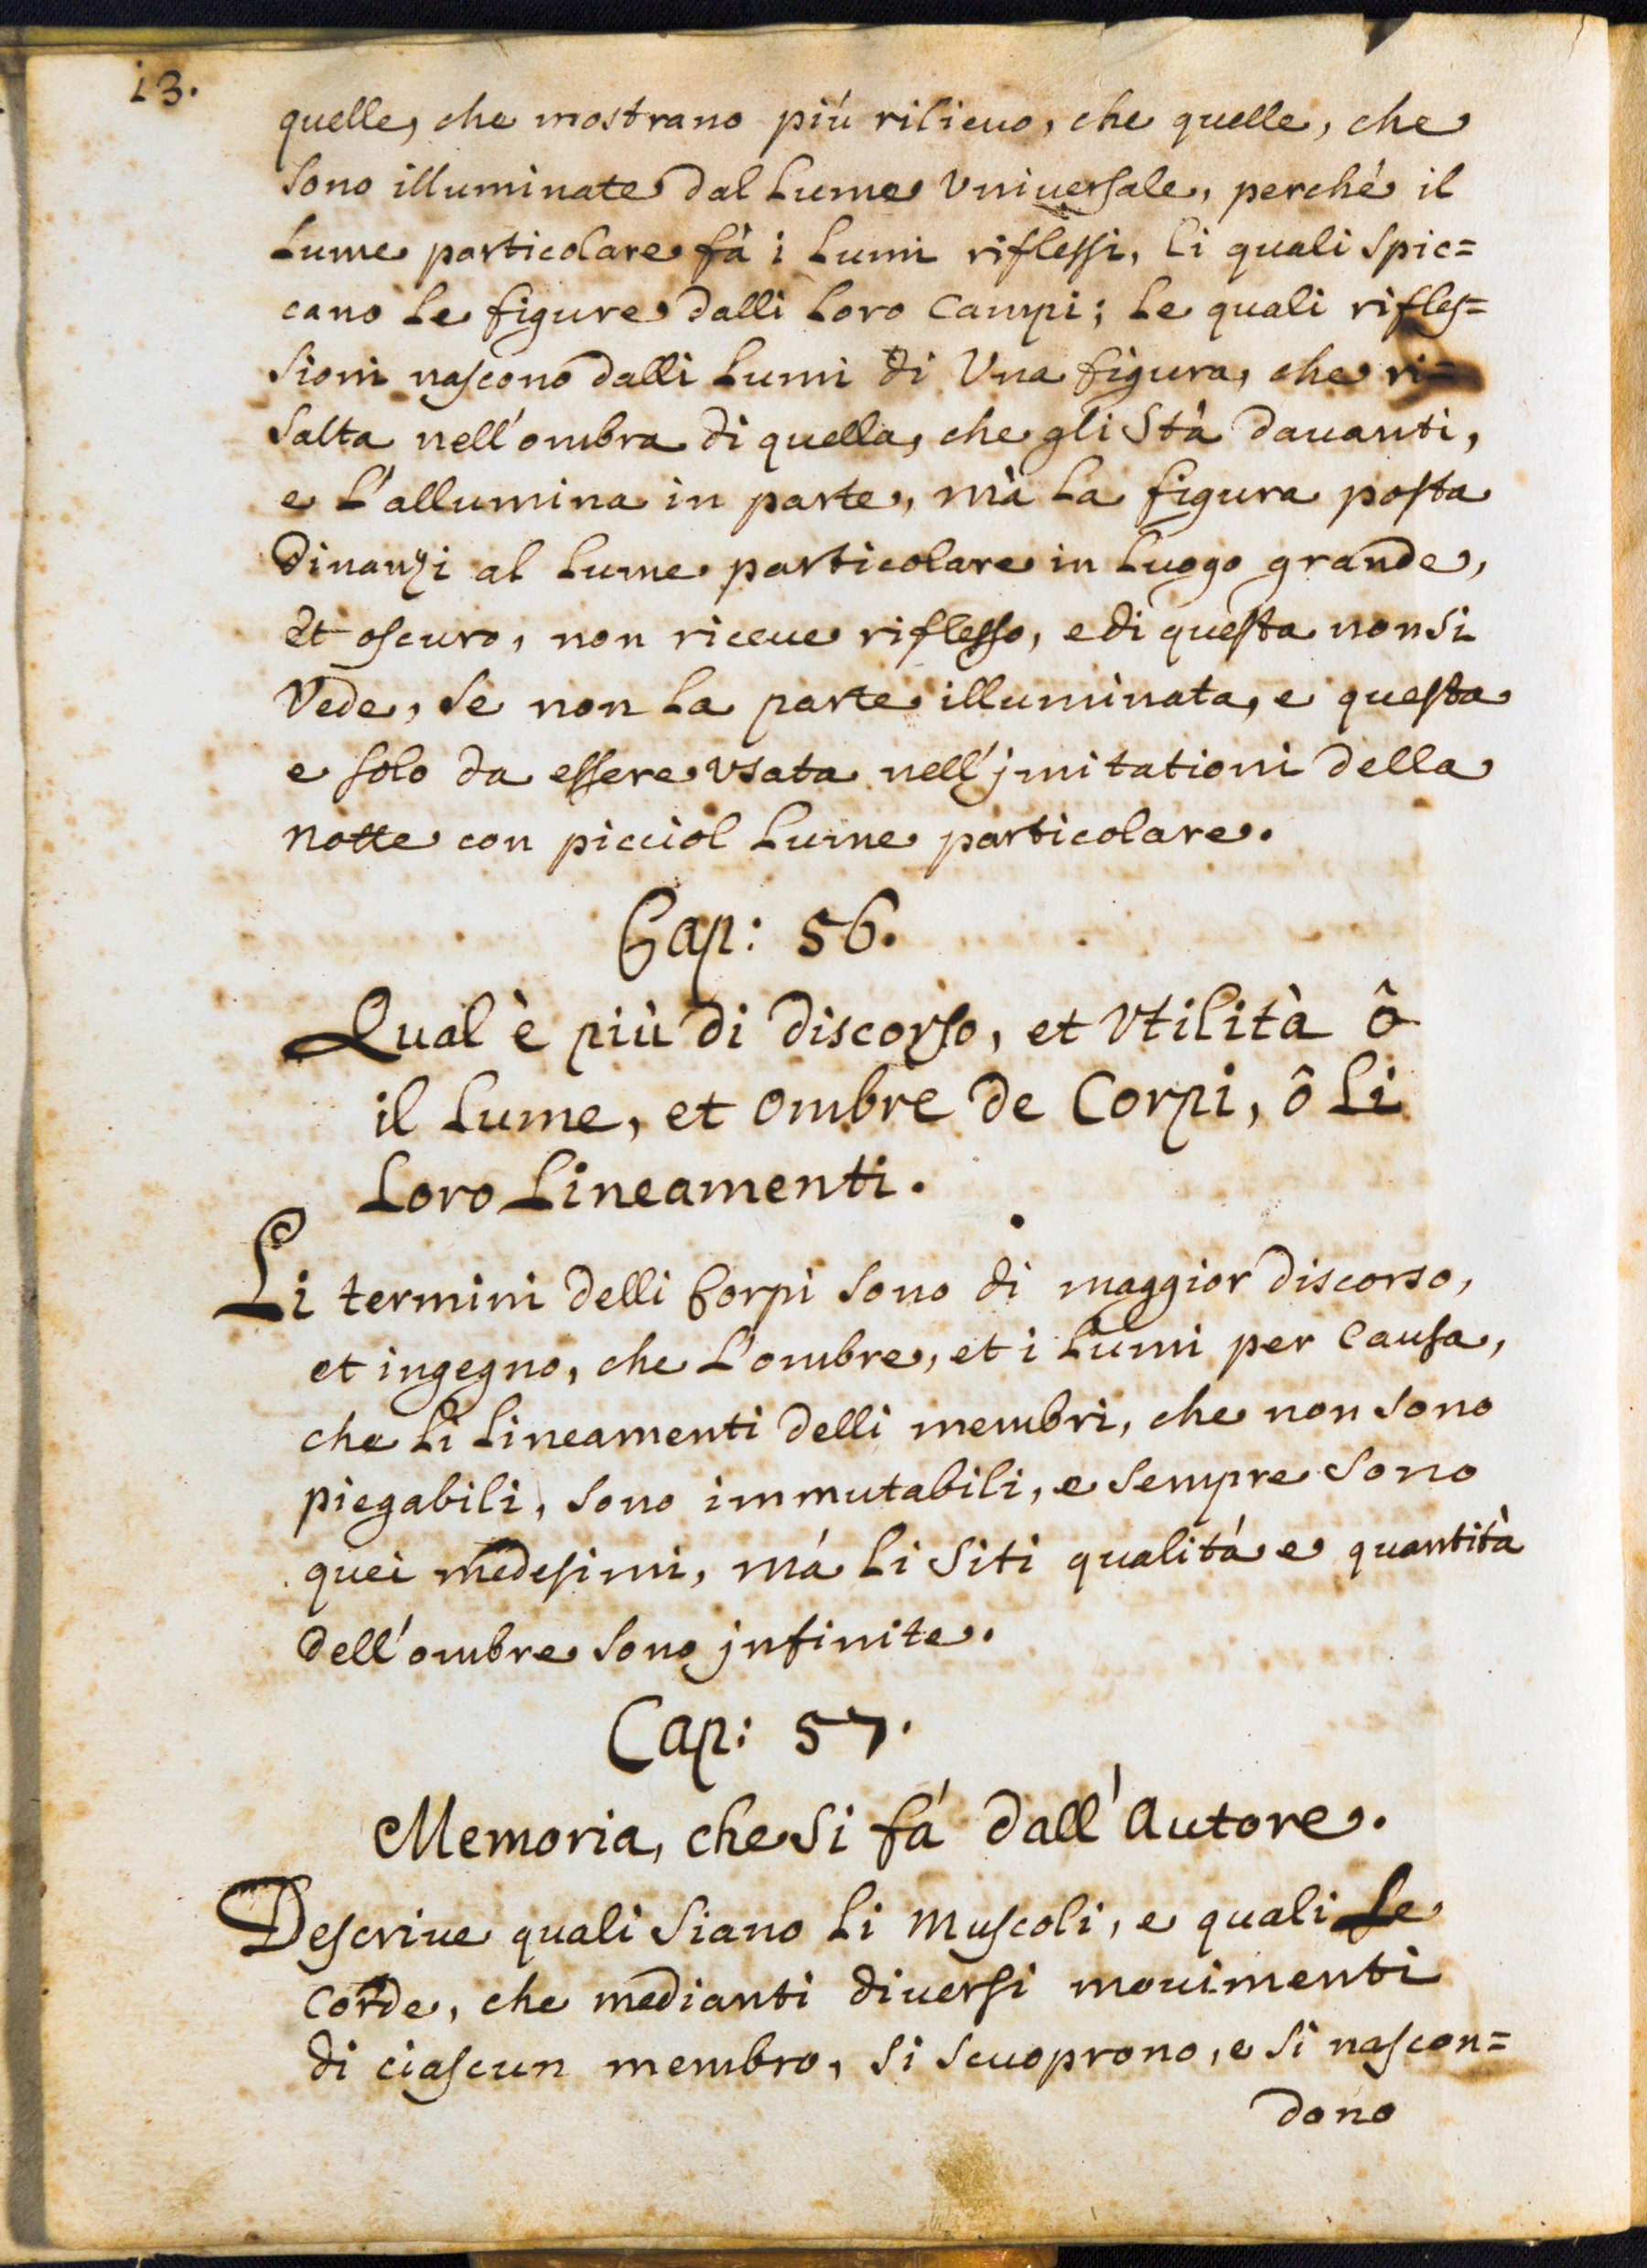 13.
quelle, che mostrano più rilieuo, che quelle, che
sono illuminate dal Lume Vniuersale, perché il
Lume particolare fà i Lumi riflessi, li quali spic=
cano Le figure dalli Loro Campi; Le quali rifles=
sioni nascono dalli Lumi di Vna figura, che ri=
salta nell'ombra di quella, che gli stà dauanti,
e L'allumina in parte, mà La figura posta
dinanzi al Lume particolare in Luogo grande,
et oscuro, non riceue riflesso, e di questa non si
Vede, se non La parte illuminata, e questa
e solo da essere vsata nell'jmitationi della
notte con picciol Lume particolare.
Cap: 56.
Qual'è più di discorso, et Vtilità ô
il Lume, et ombre de Corpi, ô Li
Loro Lineamenti.
Li termini delli Corpi sono di maggior discorso,
et ingegno, che L'ombre, et i Lumi per Causa,
che Li Lineamenti delli membri, che non sono
piegabili, sono immutabili, e sempre sono
quei medesimi, má Li siti qualitá e quantità
dell'ombre sono jnfinite.
Cap: 57.
Memoria, che si fá dall'Autore.
Descriue quali siano Li muscoli, e quali Le
Corde, che medianti diuersi mouimenti
di ciascun membro, si scuoprono, e si nascon=
dono